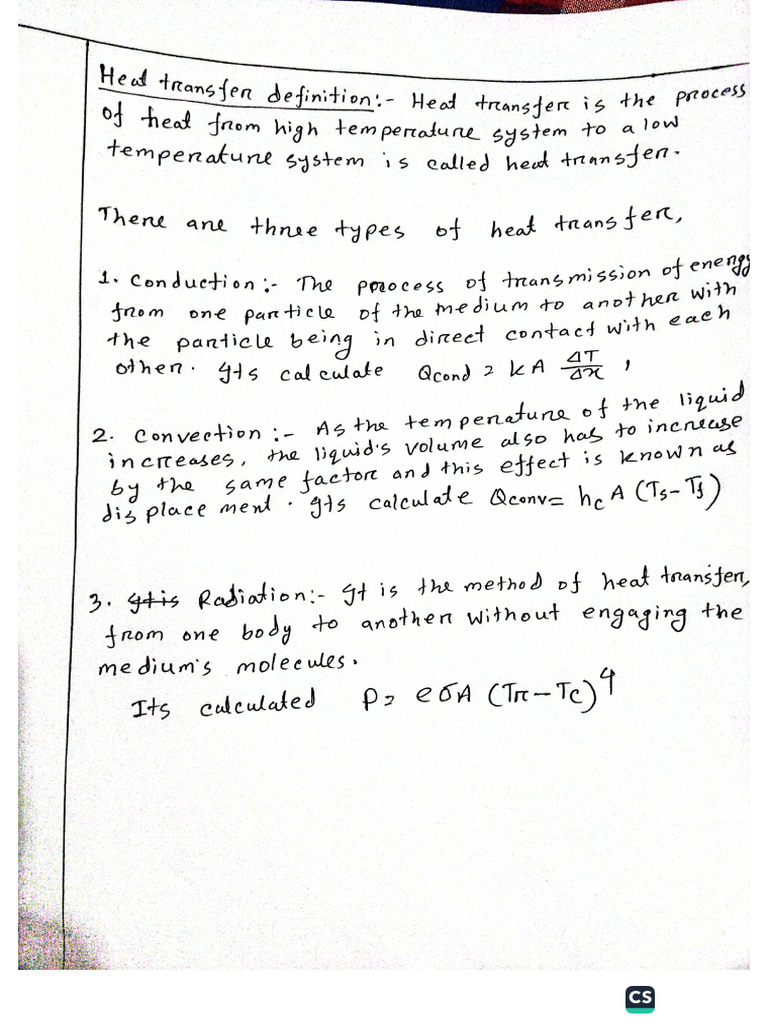 Heat transfer definition:- Heat transfer is the process
of heat from high temperature system to a low
temperature system is called heat transfer.
There are three types of heat transfer,
1. Conduction:- The process of transmission of energy
from one particle of the medium to another with
the particle being in direct contact with each
other. Its calculate Qcond = kA ΔT/Δx ,
2. Convection:- As the temperature of the liquid
increases, the liquid's volume also has to increase
by the same factor and this effect is known as
displacement. Its calculate Qconv= hc A (Ts-Tf)
3. It is Radiation:- It is the method of heat transfer,
from one body to another without engaging the
medium's molecules.
Its calculated P= eσA (Tr-Tc)⁴
CS